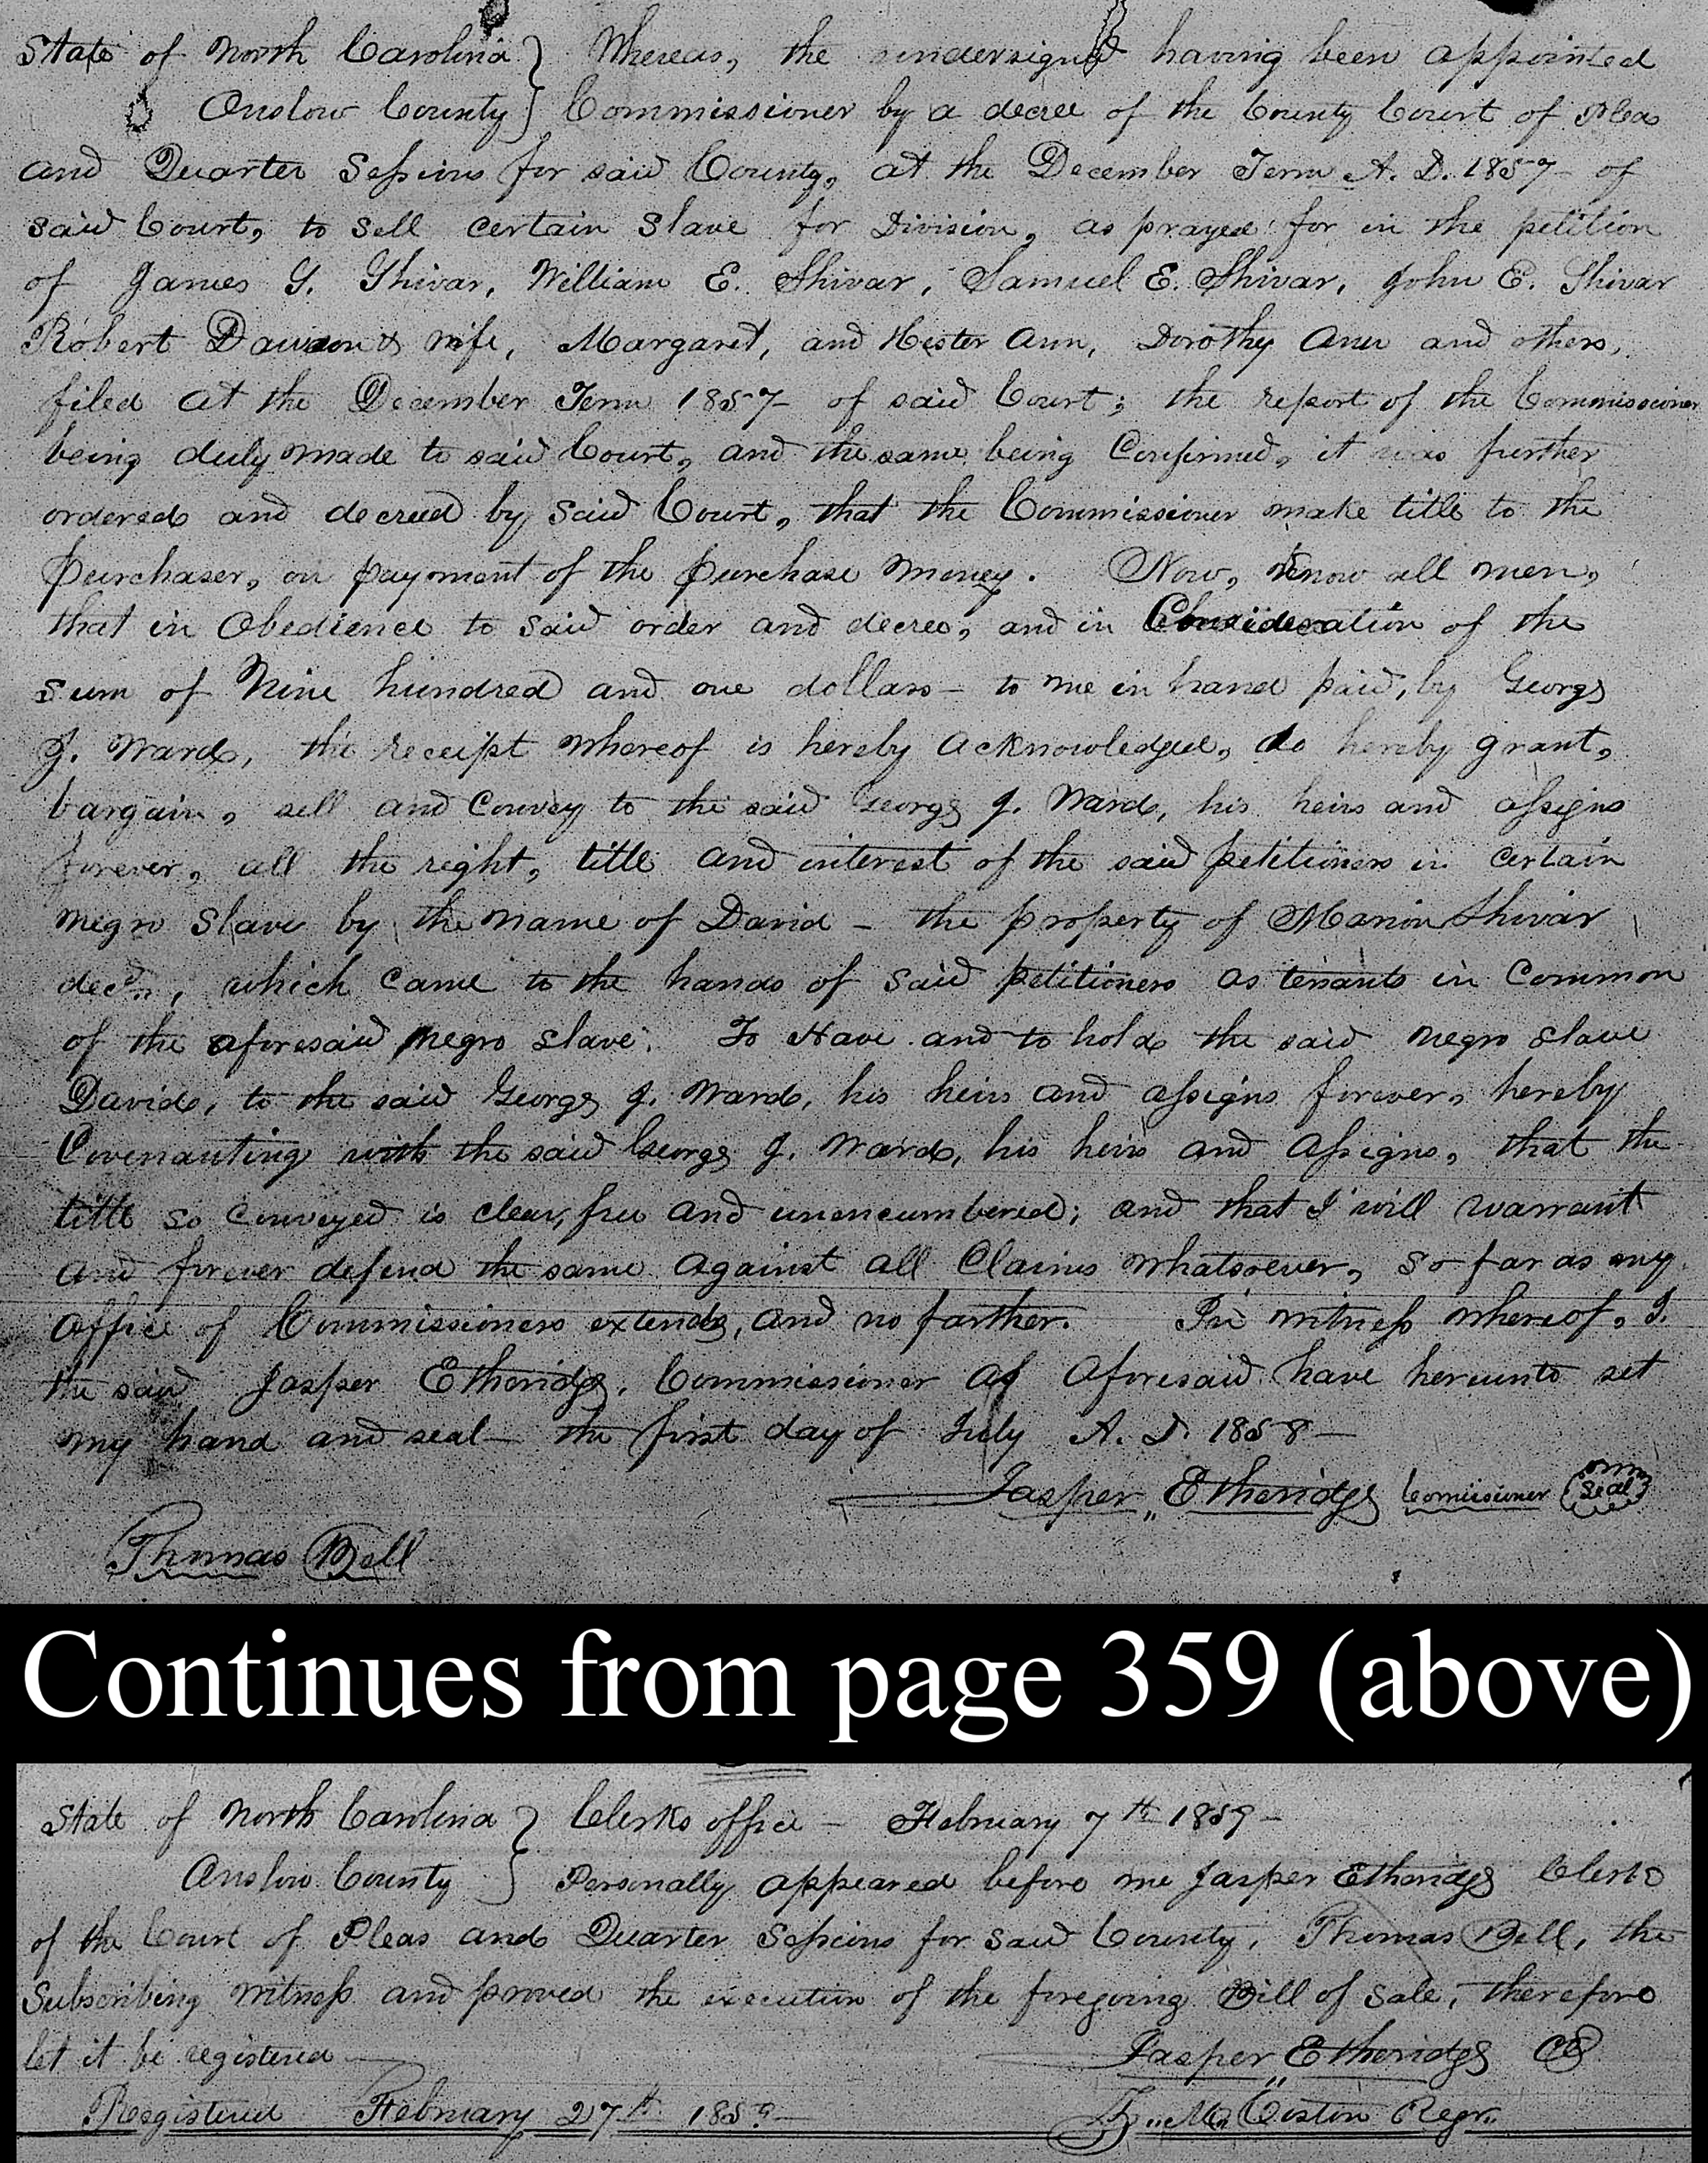 State of North Carolina } Whereas, the undersigned having been appointed
Onslow County } Commissioner by a decree of the County Court of Pleas
and Quarter Sessions for said County, at the December Term A. D. 1857 of
said Court, to sell certain slave for Division, as prayed for in the petition
of James G. Shivar, William E. Shivar, Samuel E. Shivar, John E. Shivar
Robert Dawson & wife, Margaret, and Hester Ann, Dorothy Ann and others,
filed at the December Term 1857 of said Court; the report of the Commissioner
being duly made to said Court, and the same being Confirmed, it was further
ordered and decreed by said Court, that the Commissioner make title to the
purchaser, on payment of the purchase money. Now, know all men,
that in Obedience to said order and decree, and in Consideration of the
sum of Nine hundred and one dollars – to me in hand paid, by George
J. Ward, the receipt whereof is hereby acknowledged, do hereby grant,
bargain, sell and Convey to the said George J. Ward, his heirs and assigns
forever, all the right, title and interest of the said petitioners in certain
negro slave by the name of David – the property of Marion Shivar
decd., which came to the hands of said petitioners as tenants in Common
of the aforesaid negro slave. To Have and to hold the said negro slave
David, to the said George J. Ward, his heirs and assigns forever, hereby
Covenanting with the said George J. Ward, his heirs and assigns, that the
title so conveyed is clear, free and unencumbered; and that I will warrant
and forever defend the same against all Claims whatsoever, so far as my
office of Commissioners extends, and no farther. In witness whereof, I.
the said Jasper Etheridge, Commissioner as aforesaid have hereunto set
my hand and seal – the first day of July A. D. 1858 –
Jasper Etheridge Comissioner (Seal)
Thomas Bell
Continues from page 359 (above)
State of North Carolina } Clerks office – February 7th 1859 –
Onslow County } Personally appeared before me Jasper Etheridge Clerk
of the Court of Pleas and Quarter Sessions for said County, Thomas Bell, the
Subscribing witness and proved the execution of the foregoing Bill of Sale, therefore
let it be registered
Jasper Etheridge
Registered February 27th 1859 –
Regr.